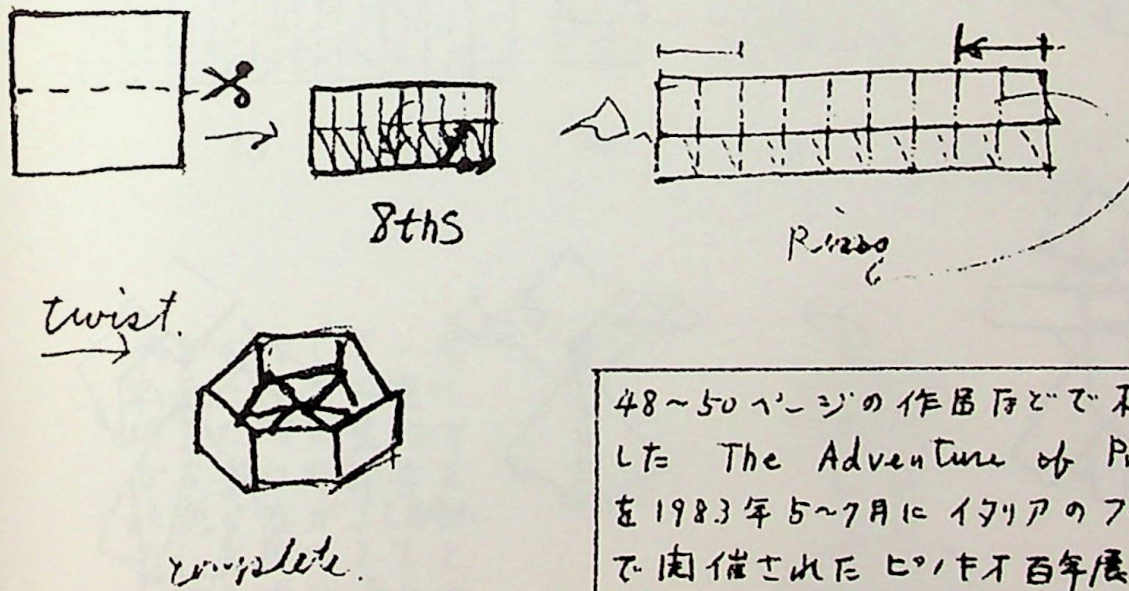 8ths
twist.
complete.
48~50ページの作品などで
した The Adventure of P
を1983年5~7月にイタリアのフ
で開催されたピノキオ百年展